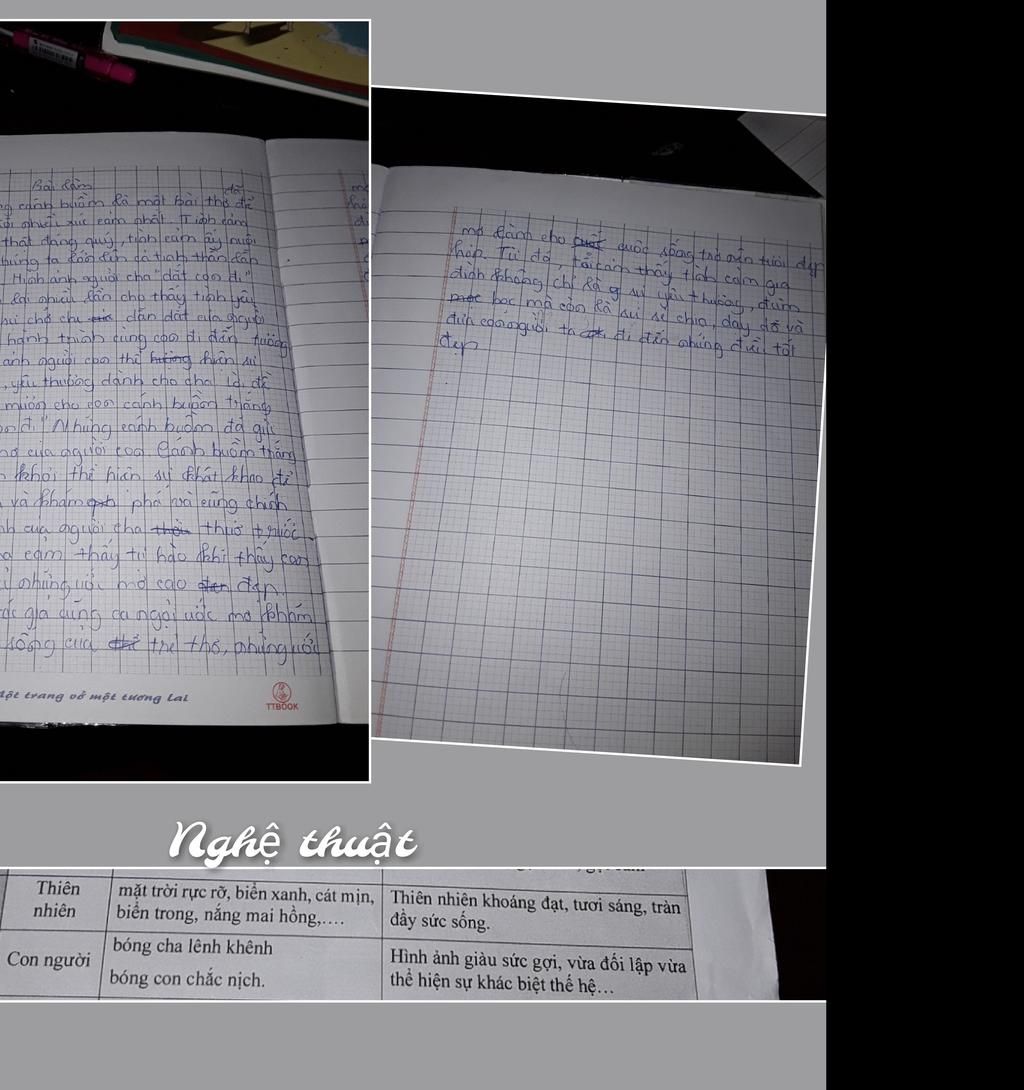 Bài làm
g cánh buồm là một bài thơ đã để
ôi nhiều xúc cảm nhất. Tình cảm
thật đáng quý, tình cảm ấy nuôi
húng ta lớn lên cả tinh thần lẫn
Hình ảnh người cha "dắt con đi"
lại nhiều lần cho thấy tình yêu
dẫn dắt của người
hành trình cùng con đi đến tương
ảnh người con thể hiện sự
, yêu thương dành cho cha
mượn cho con cánh buồm trắng
on đi" Những cánh buồm đã gửi
mơ của người con Cánh buồm trắng
khơi thể hiện sự khát khao đi
và khám phá và cũng chính
h của người cha thuở trước
cảm thấy tự hào khi thấy con
những ước mơ cao đẹp.
ác giả cũng ca ngợi ước mơ khám
sống của trẻ thơ, những ước
Một trang vở một tương lai
TTBOOK
mơ dành cho cuộc sống trở nên tươi đẹp
hơn. Từ đó, tôi cảm thấy tình cảm gia
đình không chỉ là sự yêu thương, đùm
bọc mà còn là sự sẻ chia, dạy dỗ và
đưa con người ta đi đến những điều tốt
đẹp
Nghệ thuật
Thiên nhiên
mặt trời rực rỡ, biển xanh, cát mịn,
biển trong, nắng mai hồng,….
Thiên nhiên khoáng đạt, tươi sáng, tràn
đầy sức sống.
Con người
bóng cha lênh khênh
bóng con chắc nịch.
Hình ảnh giàu sức gợi, vừa đối lập vừa
thể hiện sự khác biệt thế hệ…